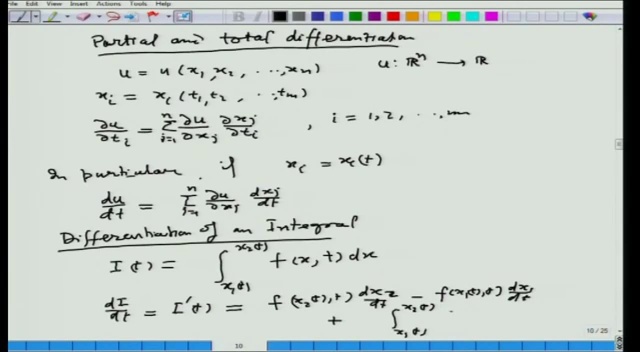 File Edit View Insert Actions Tools Help
Partial and total differentiation
u = u (x₁, x₂, ..., xₙ)   u: ℝⁿ → ℝ
xᵢ = xᵢ (t₁, t₂, ..., tₘ)
∂u/∂tᵢ = Σⁿⱼ₌₁ ∂u/∂xⱼ ∂xⱼ/∂tᵢ , i = 1, 2, ..., m
In particular, if xᵢ = xᵢ(t)
du/dt = Σⁿⱼ₌₁ ∂u/∂xⱼ dxⱼ/dt
Differentiation of an Integral
I(t) = ∫_{x₁(t)}^{x₂(t)} f(x, t) dx
dI/dt = I'(t) = f(x₂(t), t) dx₂/dt − f(x₁(t), t) dx₁/dt
+ ∫_{x₁(t)}^{x₂(t)}
10 / 25
10